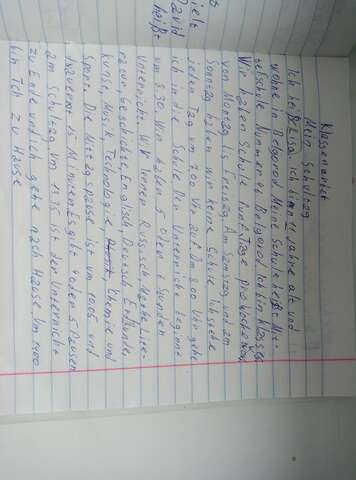 Klassenarbeit
Mein Schultag
Ich heiße Lisa. Ich bin 11 Jahre alt und
wohne in Belgorod. Meine Schule heißt Mit-
telschule Nummer Belgorod. Ich bin Klasse
Wir haben Schule fünf Tage pro Woche
von Montag bis Freitag. Am Samstag und am
Sonntag haben wir keine Schule. Ich stehe
jeden Tag um 7.00 Uhr auf. Um 8.00 Uhr gehe
ich in die Schule. Der Unterricht beginnt
um 8.30. Wir haben 5 oder 6 Stunden
Unterricht. Wir lernen Russisch Mathe Lite-
ratur, Geschichte, Englisch, Deutsch Erdkunde,
Kunst, Musik, Technologie, Chemie und
Sport. Die Mittagspause ist um 10.05 und
Minuten. Es gibt jeden 5 Pausen
am Schultag. Um 13.35 ist der Unterricht
zu Ende und ich gehe nach Hause. Um 14.00
bin ich zu Hause
ielt
David
heißt